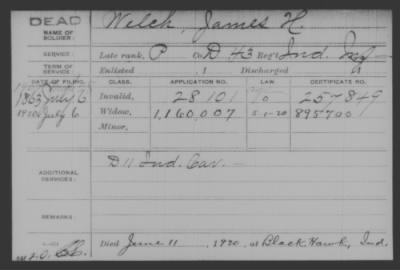 DEAD
NAME OF SOLDIER:
Welch, James H.
SERVICE:
Late rank, P Co. D, 43 Reg't Ind. Inf
TERM OF SERVICE:
Enlisted , 1 Discharged , 1
DATE OF FILING. CLASS. APPLICATION NO. LAW. CERTIFICATE NO.
1863 July 6 Invalid, 28 101 257849
1920 July 6 Widow, 1,160,007 5-1-20 895700
Minor,
ADDITIONAL SERVICES:
D 11 Ind. Cav. —
REMARKS:
Died June 11, 1920, at Black Hawk, Ind.